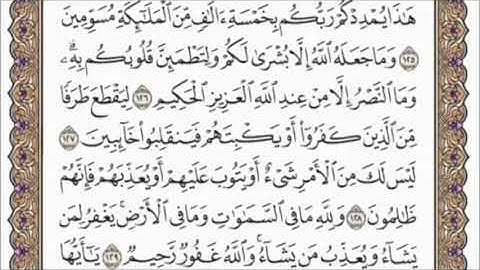 هَٰذَا يُمۡدِدۡكُمۡ رَبُّكُم بِخَمۡسَةِ ءَالَٰفٖ مِّنَ ٱلۡمَلَٰٓئِكَةِ مُسَوِّمِينَ
١٢٥ وَمَا جَعَلَهُ ٱللَّهُ إِلَّا بُشۡرَىٰ لَكُمۡ وَلِتَطۡمَئِنَّ قُلُوبُكُم بِهِۦۗ
وَمَا ٱلنَّصۡرُ إِلَّا مِنۡ عِندِ ٱللَّهِ ٱلۡعَزِيزِ ٱلۡحَكِيمِ ١٢٦ لِيَقۡطَعَ طَرَفٗا
مِّنَ ٱلَّذِينَ كَفَرُوٓاْ أَوۡ يَكۡبِتَهُمۡ فَيَنقَلِبُواْ خَآئِبِينَ ١٢٧
لَيۡسَ لَكَ مِنَ ٱلۡأَمۡرِ شَيۡءٌ أَوۡ يَتُوبَ عَلَيۡهِمۡ أَوۡ يُعَذِّبَهُمۡ فَإِنَّهُمۡ
ظَٰلِمُونَ ١٢٨ وَلِلَّهِ مَا فِي ٱلسَّمَٰوَٰتِ وَمَا فِي ٱلۡأَرۡضِۚ يَغۡفِرُ لِمَن
يَشَآءُ وَيُعَذِّبُ مَن يَشَآءُۚ وَٱللَّهُ غَفُورٞ رَّحِيمٞ ١٢٩ يَٰٓأَيُّهَا